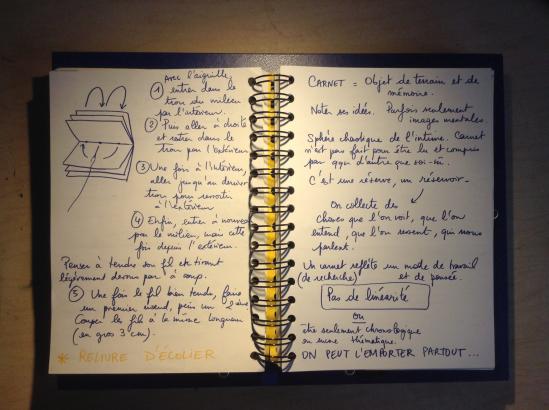 Avec l'aiguille,
① entrer dans le
trou du milieu
par l'intérieur.
② Puis aller à droite
et rentrer dans le
trou par l'extérieur.
③ Une fois à l'intérieur,
aller jusqu'au dernier
trou pour ressortir
à l'extérieur
④ Enfin, entrer à nouveau
par le milieu, mais cette
fois depuis l'extérieur.
Penser à tendre son fil en tirant
légèrement dessus par à coups.
⑤ Une fois le fil bien tendu, faire
un premier noeud, puis un 2ème
Couper les fils à la même longueur
(en gros 3 cm).
* RELIURE D'ÉCOLIER
CARNET = Objet de terrain et de
mémoire.
Noter ses idées. Parfois seulement
images mentales.
Sphère chaotique de l'intime. Carnet
n'est pas fait pour être lu et compris
par qqn d'autre que soi-m.
C'est une réserve, un réservoir.
On collecte des
choses que l'on voit, que l'on
entend, que l'on ressent, qui nous
parlent.
Un carnet reflète un mode de travail
(de recherche) et de pensée.
Pas de linéarité
ou
être seulement chronologique
ou encore thématique.
ON PEUT L'EMPORTER PARTOUT...